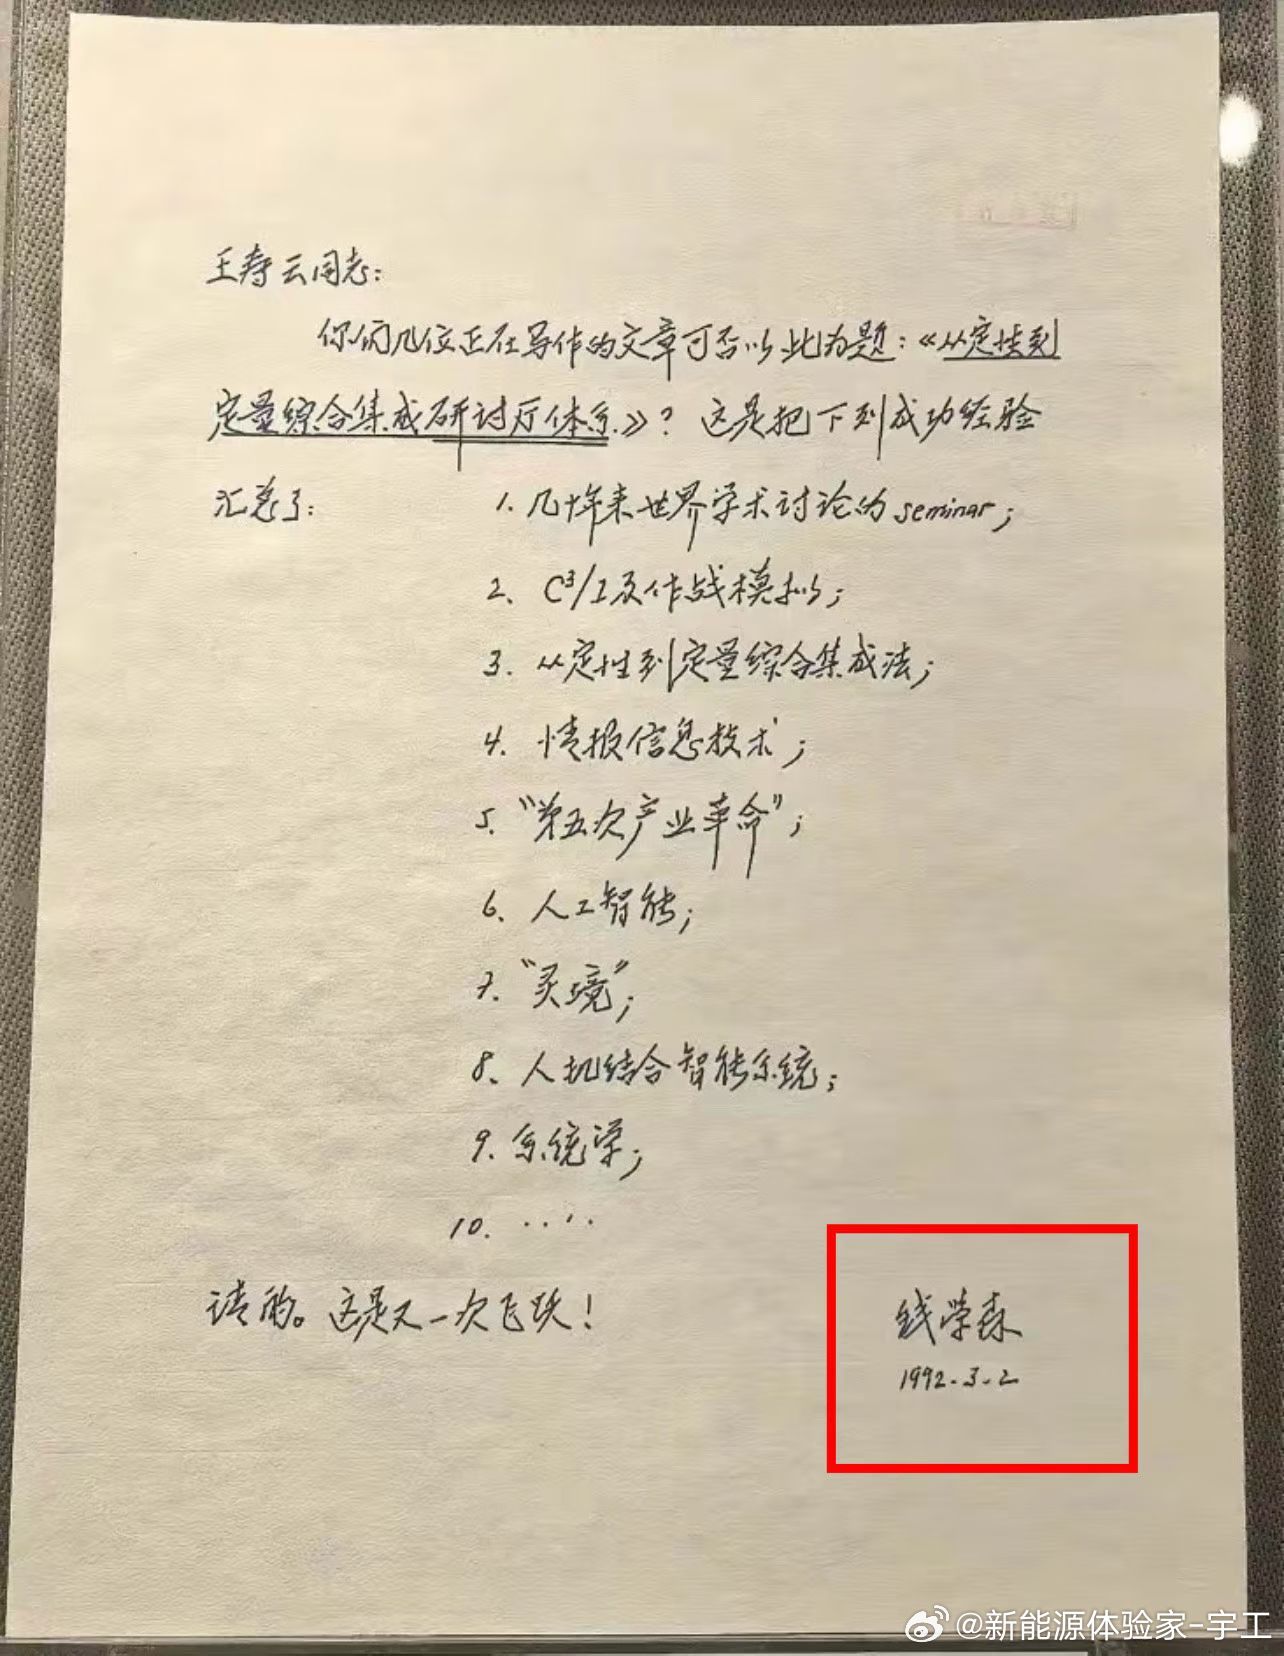 王寿云同志：
你们几位正在写作的文章可否以此为题：《从定性到
定量综合集成研讨厅体系》？这是把下列成功经验
汇总了：
1. 几十年来世界学术讨论的 seminar；
2、C³/I及作战模拟；
3. 从定性到定量综合集成法；
4. 情报信息技术；
5. “第五次产业革命”；
6、人工智能；
7. “灵境”；
8、人机结合智能系统；
9. 系统学；
10. ····
请酌。这是又一次飞跃！
钱学森
1992.3.2
@新能源体验家-宇工